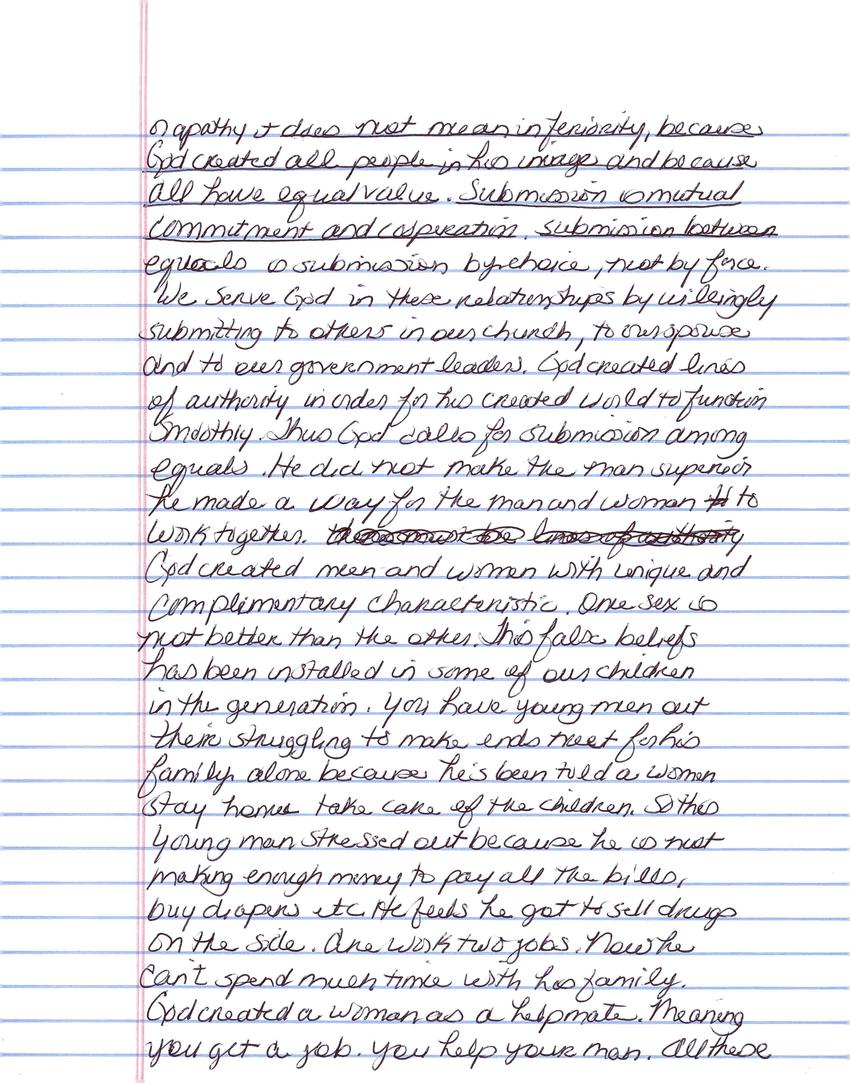 or apathy it does not mean inferiority, because
God created all people in his image and because
all have equal value. Submission is mutual
commitment and cooperation. submission between
equals is submission by choice, not by force.
We serve God in these relationships by willingly
submitting to others in our church, to our spouse
and to our government leaders. God created lines
of authority in order for his created world to function
Smoothly. Thus God calls for submission among
equals. He did not make the man superior
he made a way for the man and woman to
work together. there must be lines of authority
God created men and women with unique and
complimentary characteristic. One sex is
not better than the other. This false beliefs
has been installed in some of our children
in the generation. You have young men out
their struggling to make ends meet for his
family alone because he is been told a women
stay home take care of the children. So this
young man stressed out because he is not
making enough money to pay all the bills,
buy diapers etc. He feels he got to sell drugs
on the side. One work two jobs. Now he
can't spend much time with his family.
God created a woman as a helpmate. Meaning
you get a job. You help your man. All these